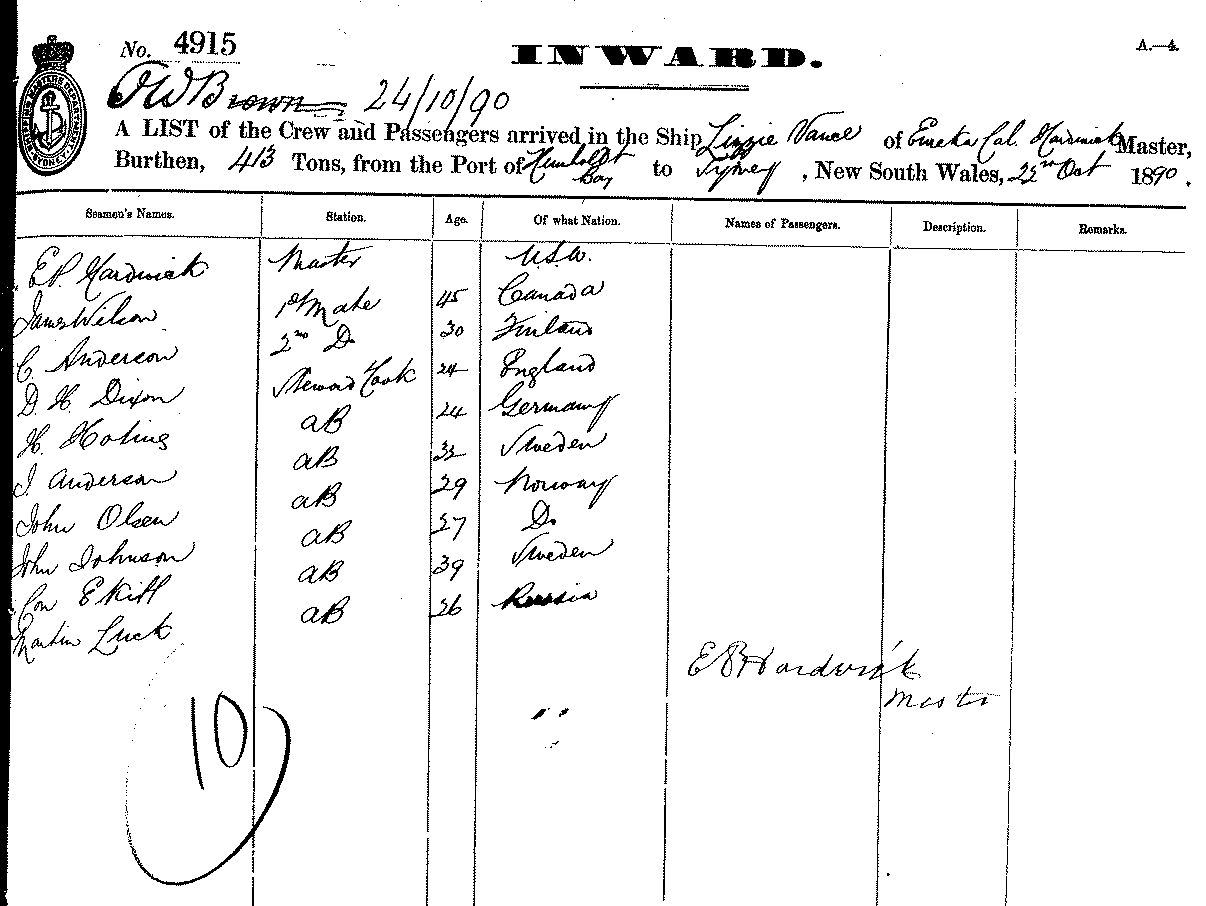 No. 4915
INWARD.
A.—4.
Brown 24/10/90
A LIST of the Crew and Passengers arrived in the Ship Lizzie Vance of Eureka Cal. Hardwick Master,
Burthen, 413 Tons, from the Port of Humboldt Bay to Sydney, New South Wales, 22nd Oct 1890.
Seamen's Names. Station. Age. Of what Nation. Names of Passengers. Description. Remarks.
E.P. Hardwick Master U.S.A.
James Wilson 1st Mate 45 Canada
C. Anderson 2nd Do 30 Finland
D. H. Dixon Steward Cook 24 England
H. AB 24 Germany
J. Anderson AB 32 Sweden
John Olsen AB 29 Norway
John Johnson AB 27 Do.
AB 39 Sweden
Martin Luck AB 26 Russia
Hardwick
Master
10